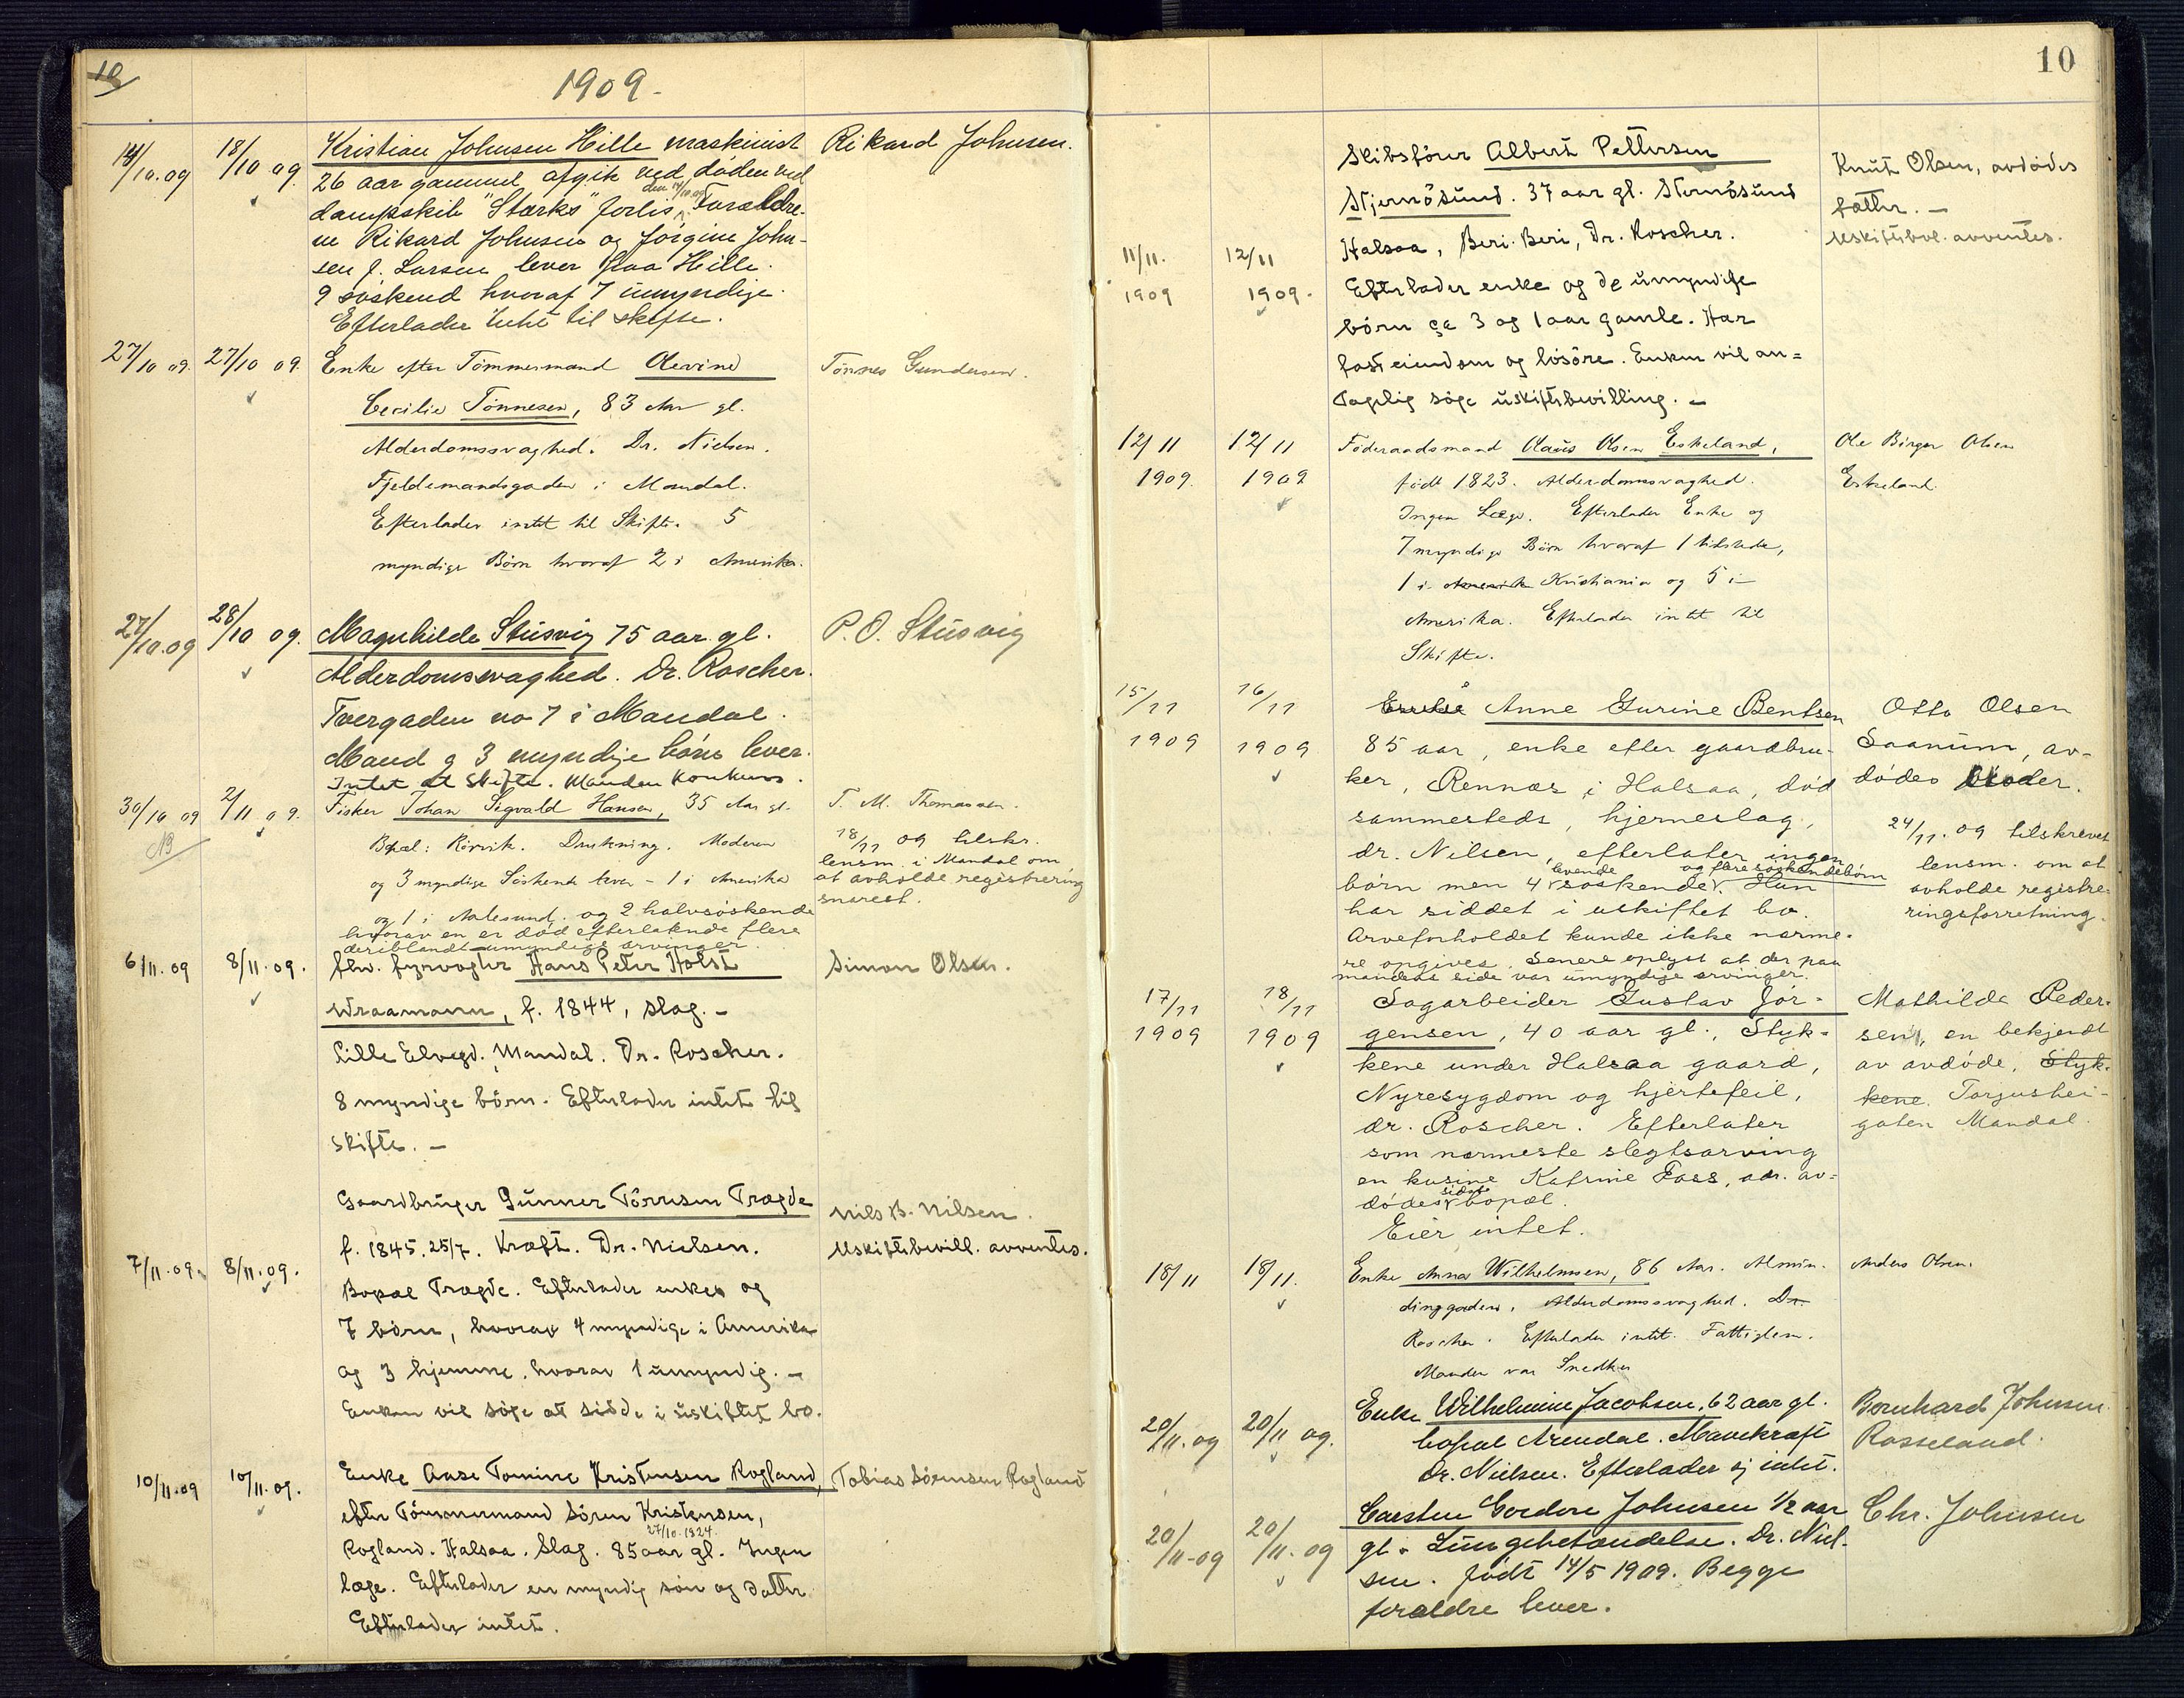 10
1909.
14/10.09
18/10 09.
Kristian Johnsen Hille maskinist
26 aar gammel afgik ved døden ved
den 14/10.09
dampskib "Stærks" forlis. Forældre-
ne Rikard Johnsen og Jørgine John-
sen f. Larsen lever paa Hille.
9 söskend hvoraf 7 umyndige.
Efterlader intet til skifte.
Rikard Johnsen.
27/10 09.
27/10 09.
Enke efter Tömmermand Olevine
Cecilie Tönnesen, 83 Aar gl.
Alderdomssvaghed. Dr. Nielsen.
Fjeldemandsgaden i Mandal.
Efterlader intet til Skifte. 5
myndige Börn hvoraf 2 i Amerika.
Tönnes Gundersen.
27/10.09
28/10 09.
Magnhilde Stusvig 75 aar gl.
Alderdomssvaghed. Dr. Roscher.
Tvergaden no 7 i Mandal.
Mand og 3 myndige börn lever.
Intet at Skifte. Manden Konkurs.
P. O. Stusvig
30/10 09
NB
2/11 09.
Fisker Johan Sigvald Hansen, 35 Aar gl.
Bopæl: Rörvik. Drukning. Moderen
og 3 myndige Söskende lever - 1 i Amerika
og 1 i Aalesund. og 2 halvsöskende
hvorav en er död efterlatende flere
deriblandt umyndige arvinger.
T. M. Thomassen.
18/11 09 tilskr.
lensm. i Mandal om
at avholde registrering
snarest.
6/11.09
8/11.09.
fhv. fyrvogter Hans Peter Holst
Wraamann, f. 1844, slag. -
Lille Elvegd. Mandal. Dr. Roscher.
8 myndige börn. Efterlader intet til
skifte. -
Simon Olsen.
7/11.09.
8/11.09.
Gaardbruger Gunner Törresen Trægde
f. 1845. 25/7. Kræft. Dr. Nielsen.
Bopæl Trægde. Efterlader enke og
7 börn, hvorav 4 myndige i Amerika
og 3 hjemme, hvorav 1 umyndig. -
Enken vil söge at sidde i uskiftet bo.
Nils B. Nilsen.
Uskiftebevill. avventes.
10/11.09
10/11.09.
Enke Aase Tomine Kristensen Rogland,
efter Tömmermand Sören Kristensen,
27/10.1824.
Rogland. Halsaa. Slag. 85 aar gl. Ingen
læge. Efterlader en myndig sön og datter
Efterlader intet.
Tobias Sörensen Rogland
10
11/11.
1909
12/11
1909.
Skibsförer Albert Pettersen
Stjernösund. 37 aar gl. Sternösund
Halsaa, Beri-Beri, Dr. Roscher.
Efterlader enke og de umyndige
börn ca 3 og 1 aar gamle. Har
fast eiendom og lösöre. Enken vil an=
tagelig söge uskiftebevilling. -
Knut Olsen, avdödes
fætter. -
Uskiftebev. avventes.
12/11
1909.
12/11
1909
Föderaadsmand Olaus Olsen Eskeland,
född 1823. Alderdomssvaghed.
Ingen Læge. Efterlader Enke og
7 myndige Börn hvoraf 1 tilstede,
1 i Amerika Kristiania og 5 i
Amerika. Efterlader intet til
Skifte.
Ole Birger Olsen
Eskeland.
15/11
1909
16/11
1909
Anne Gurine Bentsen
85 aar, enke efter gaardbru-
ker, Rennæs i Halsaa, död
sammesteds, hjerneslag,
dr. Nilsen, efterlater ingen
levende og flere söskendebörn
börn men 4 söskende. Hun
har siddet i uskiftet bo.
Arveforholdet kunde ikke nærme-
re opgives. Senere oplyst at der paa
mandens side var umyndige arvinger.
Otto Olsen
Saanum, av-
dödes broder.
24/11.09 tilskrevet
lensm. om at
avholde registre-
ringsforretning.
17/11
1909
18/11
1909
Sagarbeider Gustav Jör-
gensen, 40 aar gl., Styk-
kene under Halsaa gaard,
Nyresygdom og hjertefeil,
dr. Roscher. Efterlater
som nærmeste slegtsarving
en kusine Katrine Foss, adr. av-
sidste
dödes bopæl.
Eier intet.
Mathilde Peder-
sen, en bekjendt
av avdöde, Styk-
kene. Torjushei-
gaten Mandal.
18/11
18/11.
Enke Anna Wilhelmsen, 86 Aar. Almin-
dinggaden. Alderdomssvaghed. Dr.
Roscher. Efterlader intet. Fattiglem.
Manden var Snedker
Anders Olsen.
20/11.09
20/11 09.
Enke Wilhelmine Jacobsen, 62 aar gl.
bopæl Arendal. Mavekræft
Dr. Nielsen. Efterlader ej intet.
Bernhard Johnsen
Rosseland.
20/11-09
20/11.09
Carsten Gordon Johnsen 1/2 aar
gl. Lungebetændelse. Dr. Niel-
sen. født 14/5 1909. Begge
forældre lever.
Chr. Johnsen